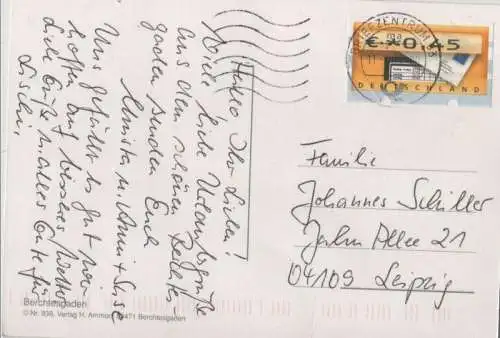 Hallo Ihr Lieben!
Viele liebe Urlaubsgrüße
aus dem schönen Berchtes-
gaden senden Euch
Uns gefällt es gut wir
hoffen auf besseres Wetter
Liebe Grüße alles Gute für
BRIEFZENTRUM
€*0,45
DEUTSCHLAND
Familie
Johannes Schiller
Jahn Allee 21
04109 Leipzig
Berchtesgaden
© Nr. 936, Verlag H. Ammon, 83471 Berchtesgaden